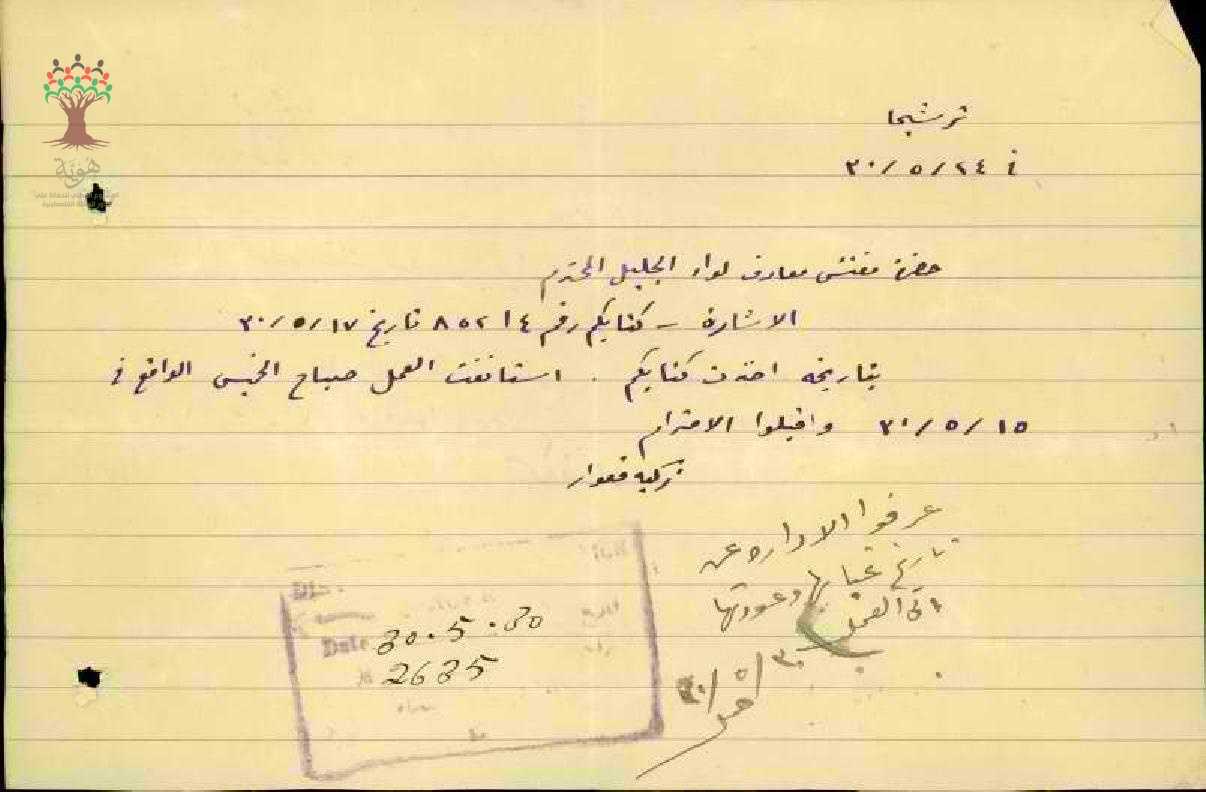 هُويَّة
ترشيحا
في ٢٤/٥/٣٠
حضرة مفتش معارف لواء الجليل المحترم
الاشارة – كتابكم رقم ٨٥٢١٤ تاريخ ١٧/٥/٣٠
بتاريخه اخذت كتابكم . استأنفت العمل صباح الخميس الواقع في
١٥/٥/٣٠ واقبلوا الاحترام
زكيه قعوار
عرفوا الاداره عن
تاريخ غيابها وعودتها
الى العمل
٣٠/٥/٣٠
Date 30.5.30
№ 2635